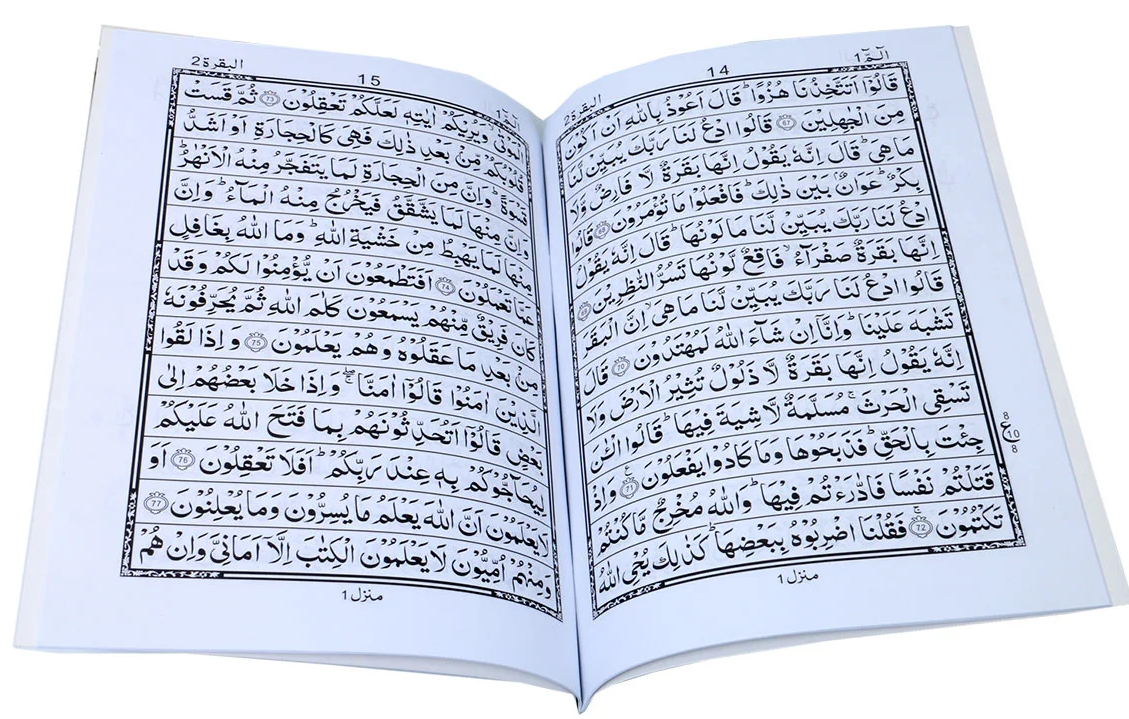 الٓمّٓ ١
14
البقرة٢
قَالُوْٓا اَتَتَّخِذُنَا هُزُوًا ؕ قَالَ اَعُوْذُ بِاللّٰهِ اَنْ اَكُوْنَ
مِنَ الْجٰهِلِيْنَ ﴿67﴾ قَالُوا ادْعُ لَنَا رَبَّكَ يُبَيِّنْ لَّنَا
مَا هِيَ ؕ قَالَ اِنَّهٗ يَقُوْلُ اِنَّهَا بَقَرَةٌ لَّا فَارِضٌ وَّلَا
بِكْرٌ ؕ عَوَانٌۢ بَيْنَ ذٰلِكَ ؕ فَافْعَلُوْا مَا تُؤْمَرُوْنَ ﴿68﴾ قَالُوا
ادْعُ لَنَا رَبَّكَ يُبَيِّنْ لَّنَا مَا لَوْنُهَا ؕ قَالَ اِنَّهٗ يَقُوْلُ
اِنَّهَا بَقَرَةٌ صَفْرَآءُ ۙ فَاقِعٌ لَّوْنُهَا تَسُرُّ النّٰظِرِيْنَ ﴿69﴾
قَالُوا ادْعُ لَنَا رَبَّكَ يُبَيِّنْ لَّنَا مَا هِيَ ۙ اِنَّ الْبَقَرَ
تَشٰبَهَ عَلَيْنَا ؕ وَاِنَّآ اِنْ شَآءَ اللّٰهُ لَمُهْتَدُوْنَ ﴿70﴾ قَالَ
اِنَّهٗ يَقُوْلُ اِنَّهَا بَقَرَةٌ لَّا ذَلُوْلٌ تُثِيْرُ الْاَرْضَ وَلَا
تَسْقِي الْحَرْثَ ۚ مُسَلَّمَةٌ لَّا شِيَةَ فِيْهَا ؕ قَالُوا الْـٰٔنَ
جِئْتَ بِالْحَقِّ ؕ فَذَبَحُوْهَا وَمَا كَادُوْا يَفْعَلُوْنَ ﴿71﴾ وَاِذْ
قَتَلْتُمْ نَفْسًا فَادّٰرَءْتُمْ فِيْهَا ؕ وَاللّٰهُ مُخْرِجٌ مَّا كُنْتُمْ
تَكْتُمُوْنَ ﴿72﴾ فَقُلْنَا اضْرِبُوْهُ بِبَعْضِهَا ؕ كَذٰلِكَ يُحْيِ اللّٰهُ
8
ع
10
8
منزل ١
الٓمّٓ ١
15
البقرة ٢
الْمَوْتٰى ۙ وَيُرِيْكُمْ اٰيٰتِهٖ لَعَلَّكُمْ تَعْقِلُوْنَ ﴿73﴾ ثُمَّ قَسَتْ
قُلُوْبُكُمْ مِّنْۢ بَعْدِ ذٰلِكَ فَهِيَ كَالْحِجَارَةِ اَوْ اَشَدُّ
قَسْوَةً ؕ وَاِنَّ مِنَ الْحِجَارَةِ لَمَا يَتَفَجَّرُ مِنْهُ الْاَنْهٰرُ ؕ
وَاِنَّ مِنْهَا لَمَا يَشَّقَّقُ فَيَخْرُجُ مِنْهُ الْمَآءُ ؕ وَاِنَّ
مِنْهَا لَمَا يَهْبِطُ مِنْ خَشْيَةِ اللّٰهِ ؕ وَمَا اللّٰهُ بِغَافِلٍ
عَمَّا تَعْمَلُوْنَ ﴿74﴾ اَفَتَطْمَعُوْنَ اَنْ يُّؤْمِنُوْا لَكُمْ وَقَدْ
كَانَ فَرِيْقٌ مِّنْهُمْ يَسْمَعُوْنَ كَلٰمَ اللّٰهِ ثُمَّ يُحَرِّفُوْنَهٗ
مِنْۢ بَعْدِ مَا عَقَلُوْهُ وَهُمْ يَعْلَمُوْنَ ﴿75﴾ وَاِذَا لَقُوا
الَّذِيْنَ اٰمَنُوْا قَالُوْٓا اٰمَنَّا ۖۚ وَاِذَا خَلَا بَعْضُهُمْ اِلٰى
بَعْضٍ قَالُوْٓا اَتُحَدِّثُوْنَهُمْ بِمَا فَتَحَ اللّٰهُ عَلَيْكُمْ
لِيُحَآجُّوْكُمْ بِهٖ عِنْدَ رَبِّكُمْ ؕ اَفَلَا تَعْقِلُوْنَ ﴿76﴾ اَوَ
لَا يَعْلَمُوْنَ اَنَّ اللّٰهَ يَعْلَمُ مَا يُسِرُّوْنَ وَمَا يُعْلِنُوْنَ ﴿77﴾
وَمِنْهُمْ اُمِّيُّوْنَ لَا يَعْلَمُوْنَ الْكِتٰبَ اِلَّآ اَمَانِيَّ وَاِنْ هُمْ
منزل ١